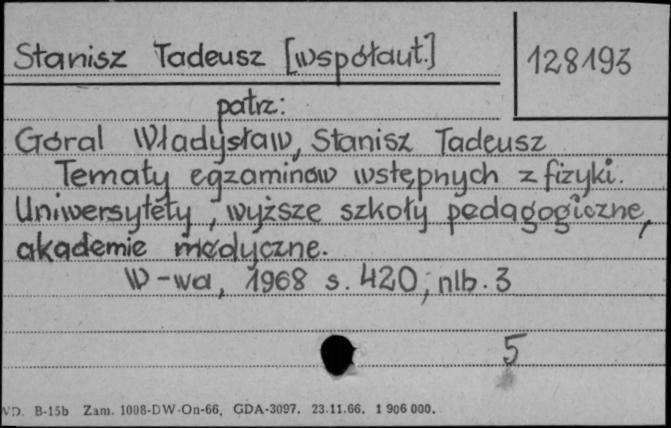 Stanisz Tadeusz [współaut.]
128193
patrz:
Góral Władysław, Stanisz Tadeusz
Tematy egzaminów wstępnych z fizyki.
Uniwersytéty, wyższe szkoły pedagogiczne,
akademie medyczne.
W-wa, 1968 s. 420, nlb. 3
5
WD. B-15b Zam. 1008-DW-On-66, GDA-3097. 23.11.66. 1 906 000.